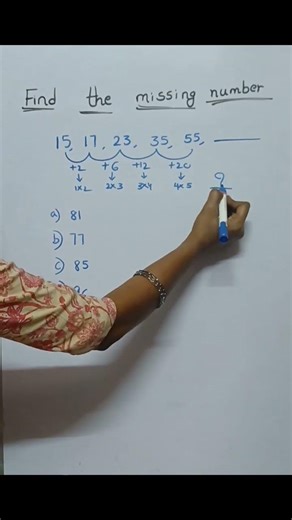 Find the missing number
15, 17, 23, 35, 55, ____
+2 +6 +12 +20
↓ ↓ ↓ ↓
1x2 2x3 3x4 4x5
a) 81
b) 77
c) 85